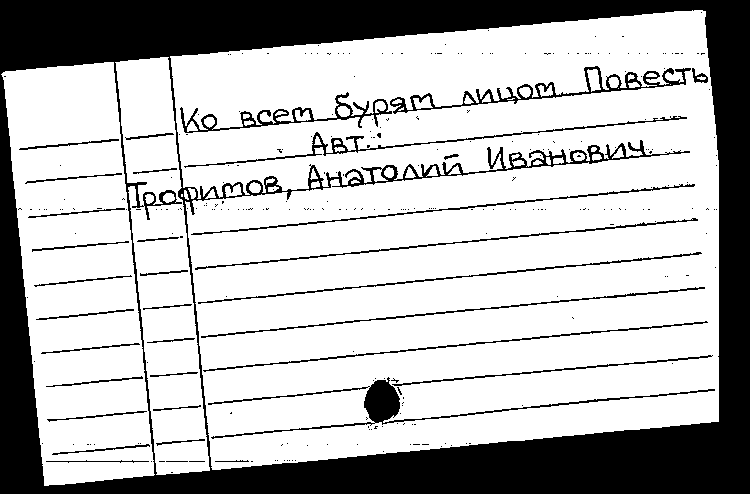 Ко всем бурям лицом. Повесть
Авт.:
Трофимов, Анатолий Иванович.